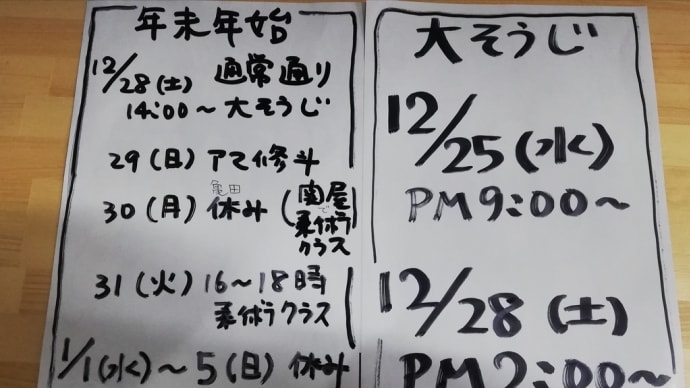 年末年始
12/28(土) 通常通り
14:00〜大そうじ
29(日) アマ修斗
亀田
30(月) 休み (関屋
で
柔術
クラス
31(火) 16〜18時
柔術クラス
1/1(水)〜5(日) 休み
大そうじ
12/25(水)
PM9:00〜
12/28(土)
PM2:00〜